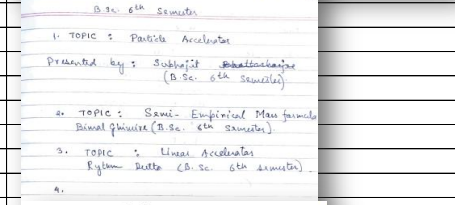 B.Sc. 6th Semester
1. TOPIC : Particle Accelerator
Presented by : Subhajit Bhattacharjee
(B.Sc. 6th Semester)
2. TOPIC : Semi-Empirical Mass formula
Bimal Ghimire (B.Sc. 6th Semester).
3. TOPIC : Linear Accelerator
Rytam Dutta (B.Sc. 6th Semester).
4.